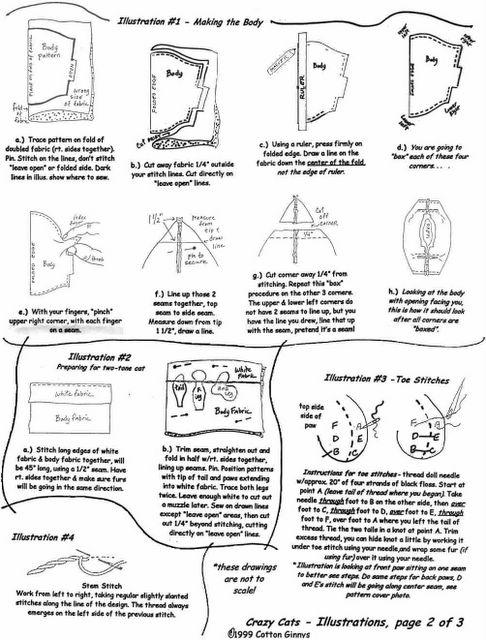 Illustration #1 - Making the Body
PLACE ON FOLD OF FABRIC
Body
pattern
OPEN
wrong
side of
fabric
fold of
a.) Trace pattern on fold of
doubled fabric (rt. sides together).
Pin. Stitch on the lines, don't stitch
"leave open" or folded side. Dark
lines in illus. show where to sew.
FOLDED EDGE
Body
b.) Cut away fabric 1/4" outside
your stitch lines. Cut directly on
"leave open" lines.
RULER
Body
c.) Using a ruler, press firmly on
folded edge. Draw a line on the
fabric down the center of the fold,
not the edge of ruler.
FOLDED EDGE
Body
d.) You are going to
"box" each of these four
corners. . . .
FOLDED EDGE
Body
index
thumb
e.) With your fingers, "pinch"
upper right corner, with each finger
on a seam.
1 1/2"
measure
from
tip
draw
line
pin to
secure
f.) Line up those 2
seams together, top
seam to side seam.
Measure down from tip
1 1/2", draw a line.
Cut
off
CORNER
1/4"
g.) Cut corner away 1/4" from
stitching. Repeat this "box"
procedure on the other 3 corners.
The upper & lower left corners do
not have 2 seams to line up, but you
have the line you drew, line that up
with the seam, pretend it's a seam!
h.) Looking at the body
with opening facing you,
this is how it should look
after all corners are
"boxed".
Illustration #2
Preparing for two-tone cat
White fabric
Body Fabric
a.) Stitch long edges of white
fabric & body fabric together, will
be 45" long, using a 1/2" seam. Have
rt. sides together & make sure furs
will be going in the same direction.
White
fabric
tail
Leg
Body Fabric
b.) Trim seam, straighten out and
fold in half w/rt. sides together,
lining up seams. Pin. Position patterns
with tip of tail and paws extending
into white fabric. Trace both legs
twice. Leave enough white to cut out
a muzzle later. Sew on drawn lines
except "leave open" areas, then cut
out 1/4" beyond stitching, cutting
directly on "leave open" lines.
Illustration #3 -Toe Stitches
top side
side of
paw
F
A
D
E
B
C
F
A
D
E
B
C
Instructions for toe stitches- thread doll needle
w/approx. 20" of four strands of black floss. Start at
point A (leave tail of thread where you began). Take
needle through foot to B on the other side, then over
foot to C, through foot to D, over foot to E, through
foot to F, over foot to A where you left the tail of
thread. Tie the two tails in a knot at point A. Trim
excess thread, you can hide knot a little by working it
under toe stitch using your needle,and wrap some fur (if
using fur) over it using your needle.
*Illustration is looking at front paw sitting on one seam
to better see steps. Do same steps for back paws, D
and E's stitch will be going along center seam, see
pattern cover photo.
Illustration #4
Stem Stitch
Work from left to right, taking regular slightly slanted
stitches along the line of the design. The thread always
emerges on the left side of the previous stitch.
*these drawings
are not to
scale!
Crazy Cats - Illustrations, page 2 of 3
©1999 Cotton Ginnys